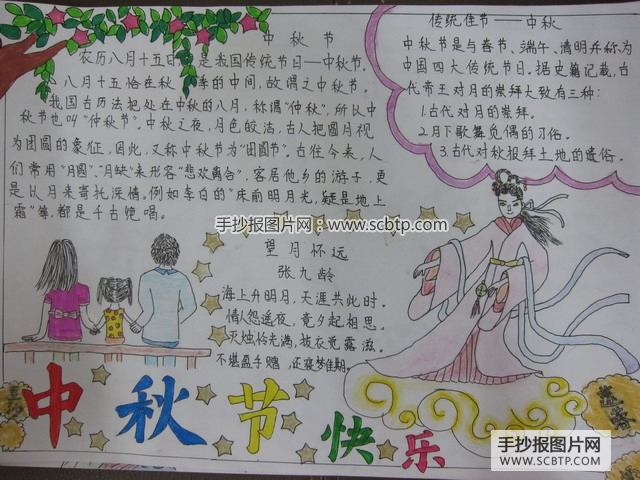 中秋节
农历八月十五日 是我国传统节日——中秋节。
八月十五恰在秋季的中间,故谓之中秋节。
我国古历法把处在中秋的八月,称谓“仲秋”,所以中
秋节也叫“仲秋节”。中秋之夜,月色皎洁,古人把圆月视
为团圆的象征,因此,又称中秋节为“团圆节”。古往今来,人
们常用“月圆”、“月缺”来形容“悲欢离合”,客居他乡的游子,更
是以月来寄托深情。例如李白的“床前明月光,疑是地上
霜”等,都是千古绝唱。
传统佳节——中秋
中秋节是与春节、端午、清明并称为
中国四大传统节日。据史籍记载,古
代帝王对月的崇拜大致有三种:
1.古代对月的崇拜。
2.月下歌舞觅偶的习俗。
3.古代对秋报拜土地的遗俗。
手抄报图片网 www.scbtp.com
望月怀远
张九龄
海上升明月,天涯共此时。
情人怨遥夜,竟夕起相思。
灭烛怜光满,披衣觉露滋。
不堪盈手赠,还寝梦佳期。
中秋节快乐
手抄报图片网
WWW.SCBTP.COM